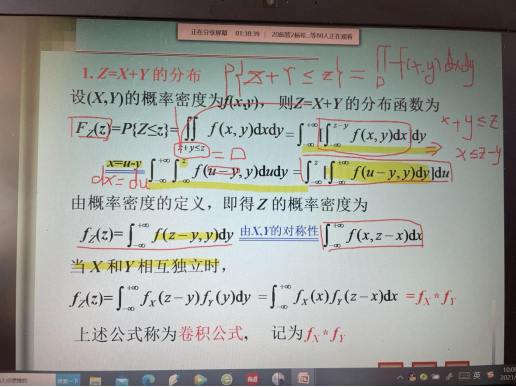 正在分享屏幕 01:38:39
等80人正在观看
1. Z=X+Y 的分布 P{X+Y≤z}=∬_D f(x,y)dxdy
设(X,Y)的概率密度为f(x,y), 则Z=X+Y的分布函数为
F_Z(z)=P{Z≤z}=∬_{x+y≤z} f(x,y)dxdy=∫_{-∞}^{+∞}[∫_{-∞}^{z-y} f(x,y)dx]dy
=D
x+y≤z
⇒ x≤z-y
x=u-y ∫_{-∞}^{+∞}∫_{-∞}^{z} f(u-y,y)dudy=∫_{-∞}^{z}[∫_{-∞}^{+∞} f(u-y,y)dy]du
dx=du
由概率密度的定义，即得 Z 的概率密度为
f_Z(z)=∫_{-∞}^{+∞} f(z-y,y)dy 由X,Y的对称性 ∫_{-∞}^{+∞} f(x,z-x)dx
当 X 和 Y 相互独立时，
f_Z(z)=∫_{-∞}^{+∞} f_X(z-y)f_Y(y)dy=∫_{-∞}^{+∞} f_X(x)f_Y(z-x)dx=f_X*f_Y
上述公式称为卷积公式， 记为f_X*f_Y
英